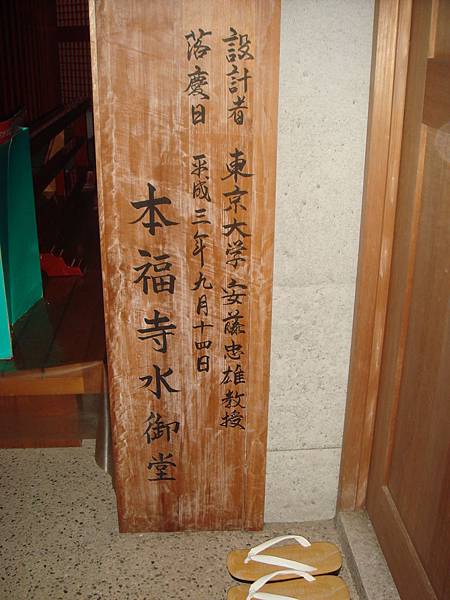 設計者 東京大学 安藤忠雄教授
落慶日 平成三年九月十四日
本福寺水御堂